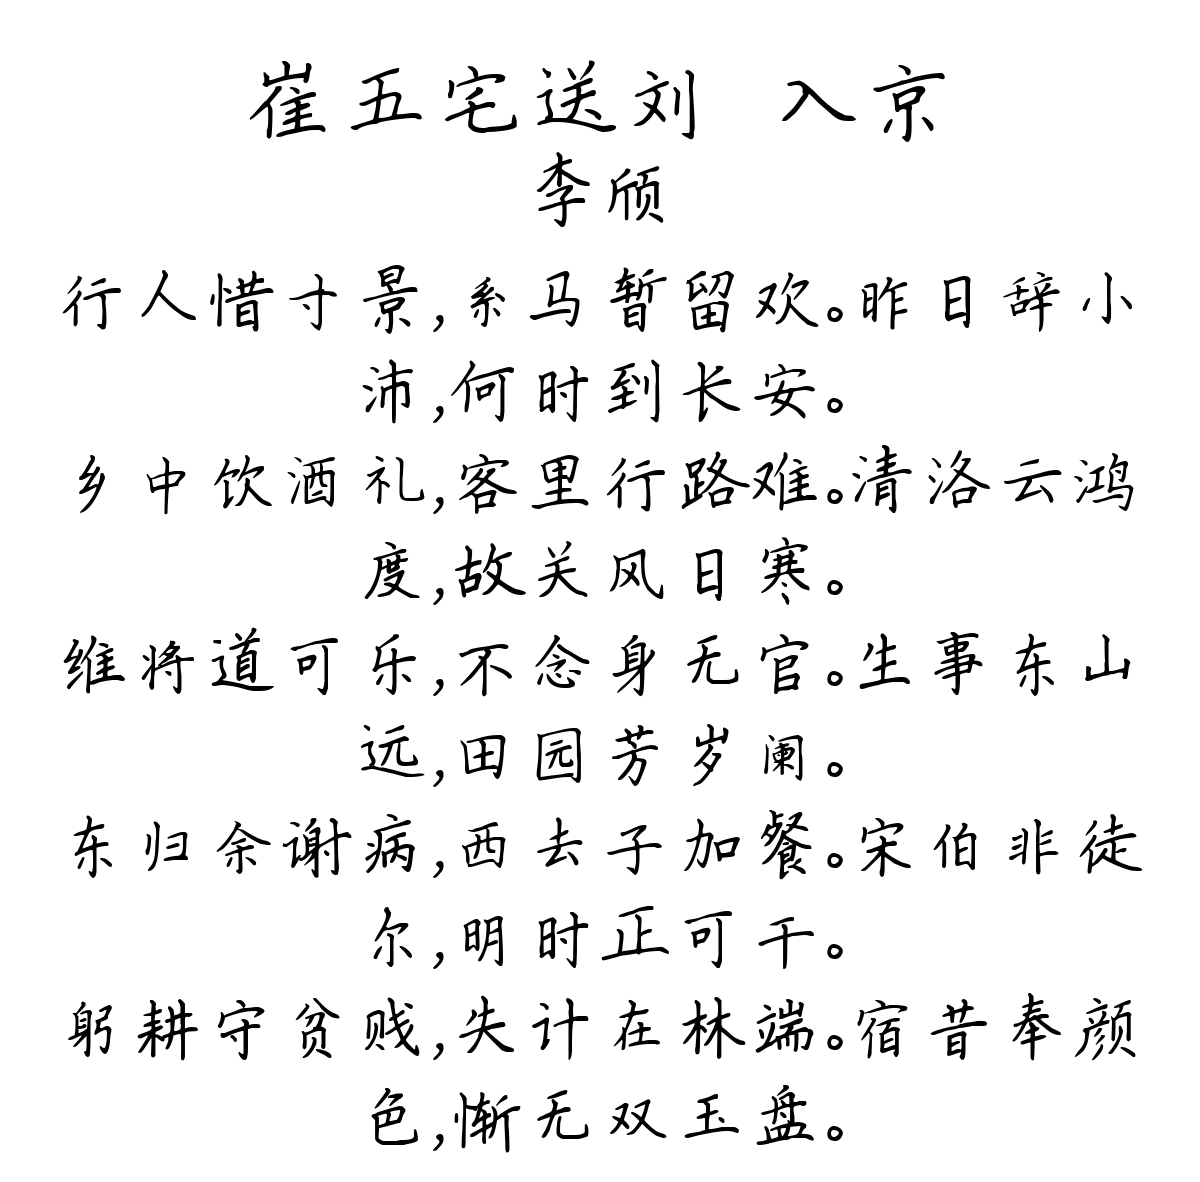 崔五宅送刘 入京
李颀
行人惜寸景,系马暂留欢。昨日辞小
沛,何时到长安。
乡中饮酒礼,客里行路难。清洛云鸿
度,故关风日寒。
维将道可乐,不念身无官。生事东山
远,田园芳岁阑。
东归余谢病,西去子加餐。宋伯非徒
尔,明时正可干。
躬耕守贫贱,失计在林端。宿昔奉颜
色,惭无双玉盘。